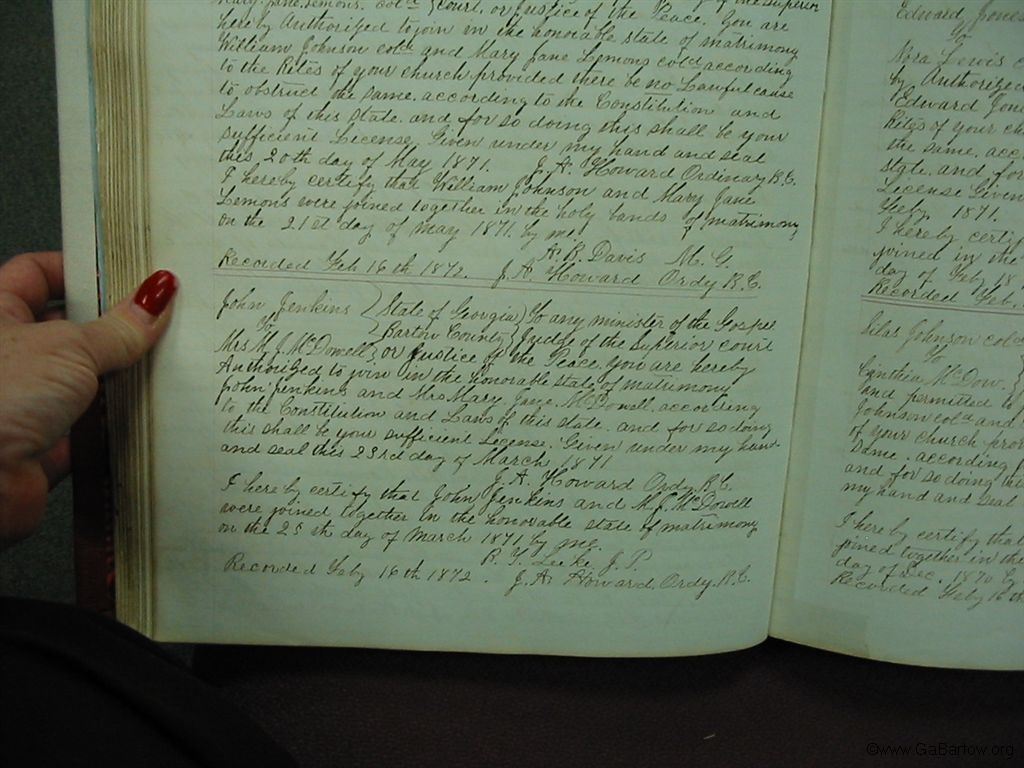 Mary Jane Lemons. cold } Court. or Justice of the Peace. You are
hereby Authorized to join in the honorable state of matrimony
William Johnson cold and Mary Jane Lemons cold according
to the Rites of your church provided there be no Lawful cause
to obstruct the same. according to the Constitution and
Laws of this State. and for so doing this shall be your
sufficient License. Given under my hand and seal
this 20th day of May 1871. J. A. Howard Ordinary B.C.
I hereby certify that William Johnson and Mary Jane
Lemons were joined together in the holy bands of matrimony
on the 21st day of May 1871. by me
A. B. Davis M. G.
Recorded Feb 16th 1872. J. A. Howard Ordy B.C.
John Jenkins } State of Georgia } To any minister of the Gospel
To } Bartow County } Judge of the superior court
Mrs M. J. McDowell } or Justice of the Peace. You are hereby
Authorized to join in the honorable state of matrimony
John Jenkins and Mrs Mary Jane McDowell. according
to the Constitution and Laws of this state. and for so doing
this shall be your sufficient License. Given under my hand
and seal this 23rd day of March 1871
J. A. Howard Ordy B.C
I hereby certify that John Jenkins and M. J. McDowell
were joined together in the honorable state of matrimony
on the 25th day of March 1871 by me.
J. P.
Recorded Feby 16th 1872. J. A. Howard. Ordy. B.C.
Edward Jones
To
Nora Lewis c
by Authorized
Edward Jone
Rites of your ch
the same. acc
state. and for
License Given
Feby. 1871.
I hereby certif
joined in the
day of Feb 18
Recorded Feb.
Silas Johnson cold
To
Cynthia McDow. }
and permitted to j
Johnson cold and
of your church prov
Dame. according
and for so doing this
my hand and seal
I hereby certify that
joined together in the
day of Dec. 1870 by
Recorded Feby 16th
©www.GaBartow.org